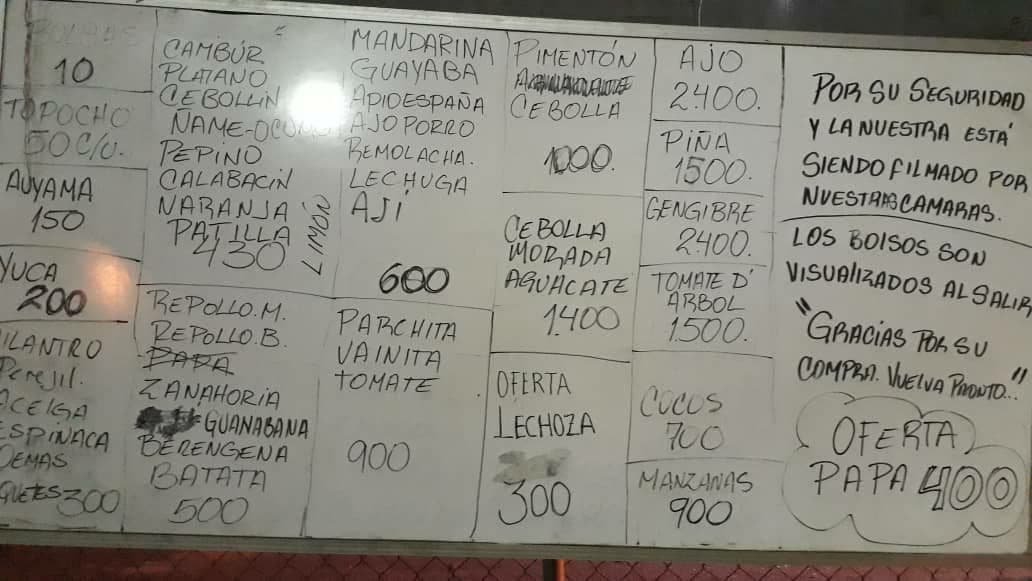 BOLSAS
10
TOPOCHO
50 C/U.
AUYAMA
150
YUCA
200
ILANTRO
Perejil.
ACELGA
ESPINACA
DEMAS
QUETES 300
CAMBÚR
PLATANO
CEBOLLIN
ÑAME-OCUMO
PEPINO
CALABACIN
NARANJA
PATILLA
430
LIMÓN
REPOLLO.M.
REPOLLO.B.
PAPA
ZANAHORIA
GUANABANA
BERENGENA
BATATA
500
MANDARINA
GUAYABA
APIOESPAÑA
AJOPORRO
REMOLACHA.
LECHUGA
AJÍ
600
PARCHITA
VAINITA
TOMATE
900
PIMENTÓN
CEBOLLA
1000.
CEBOLLA
MORADA
AGUACATE
1.400
OFERTA
LECHOZA
300
AJO
2.400.
PIÑA
1500.
GENGIBRE
2.400.
TOMATE D'
ARBOL
1.500.
COCOS
700
MANZANAS
900
POR SU SEGURIDAD
Y LA NUESTRA ESTÁ
SIENDO FILMADO POR
NUESTRAS CAMARAS.
LOS BOLSOS SON
VISUALIZADOS AL SALIR
"GRACIAS POR SU
COMPRA. VUELVA PRONTO.."
OFERTA
PAPA 400